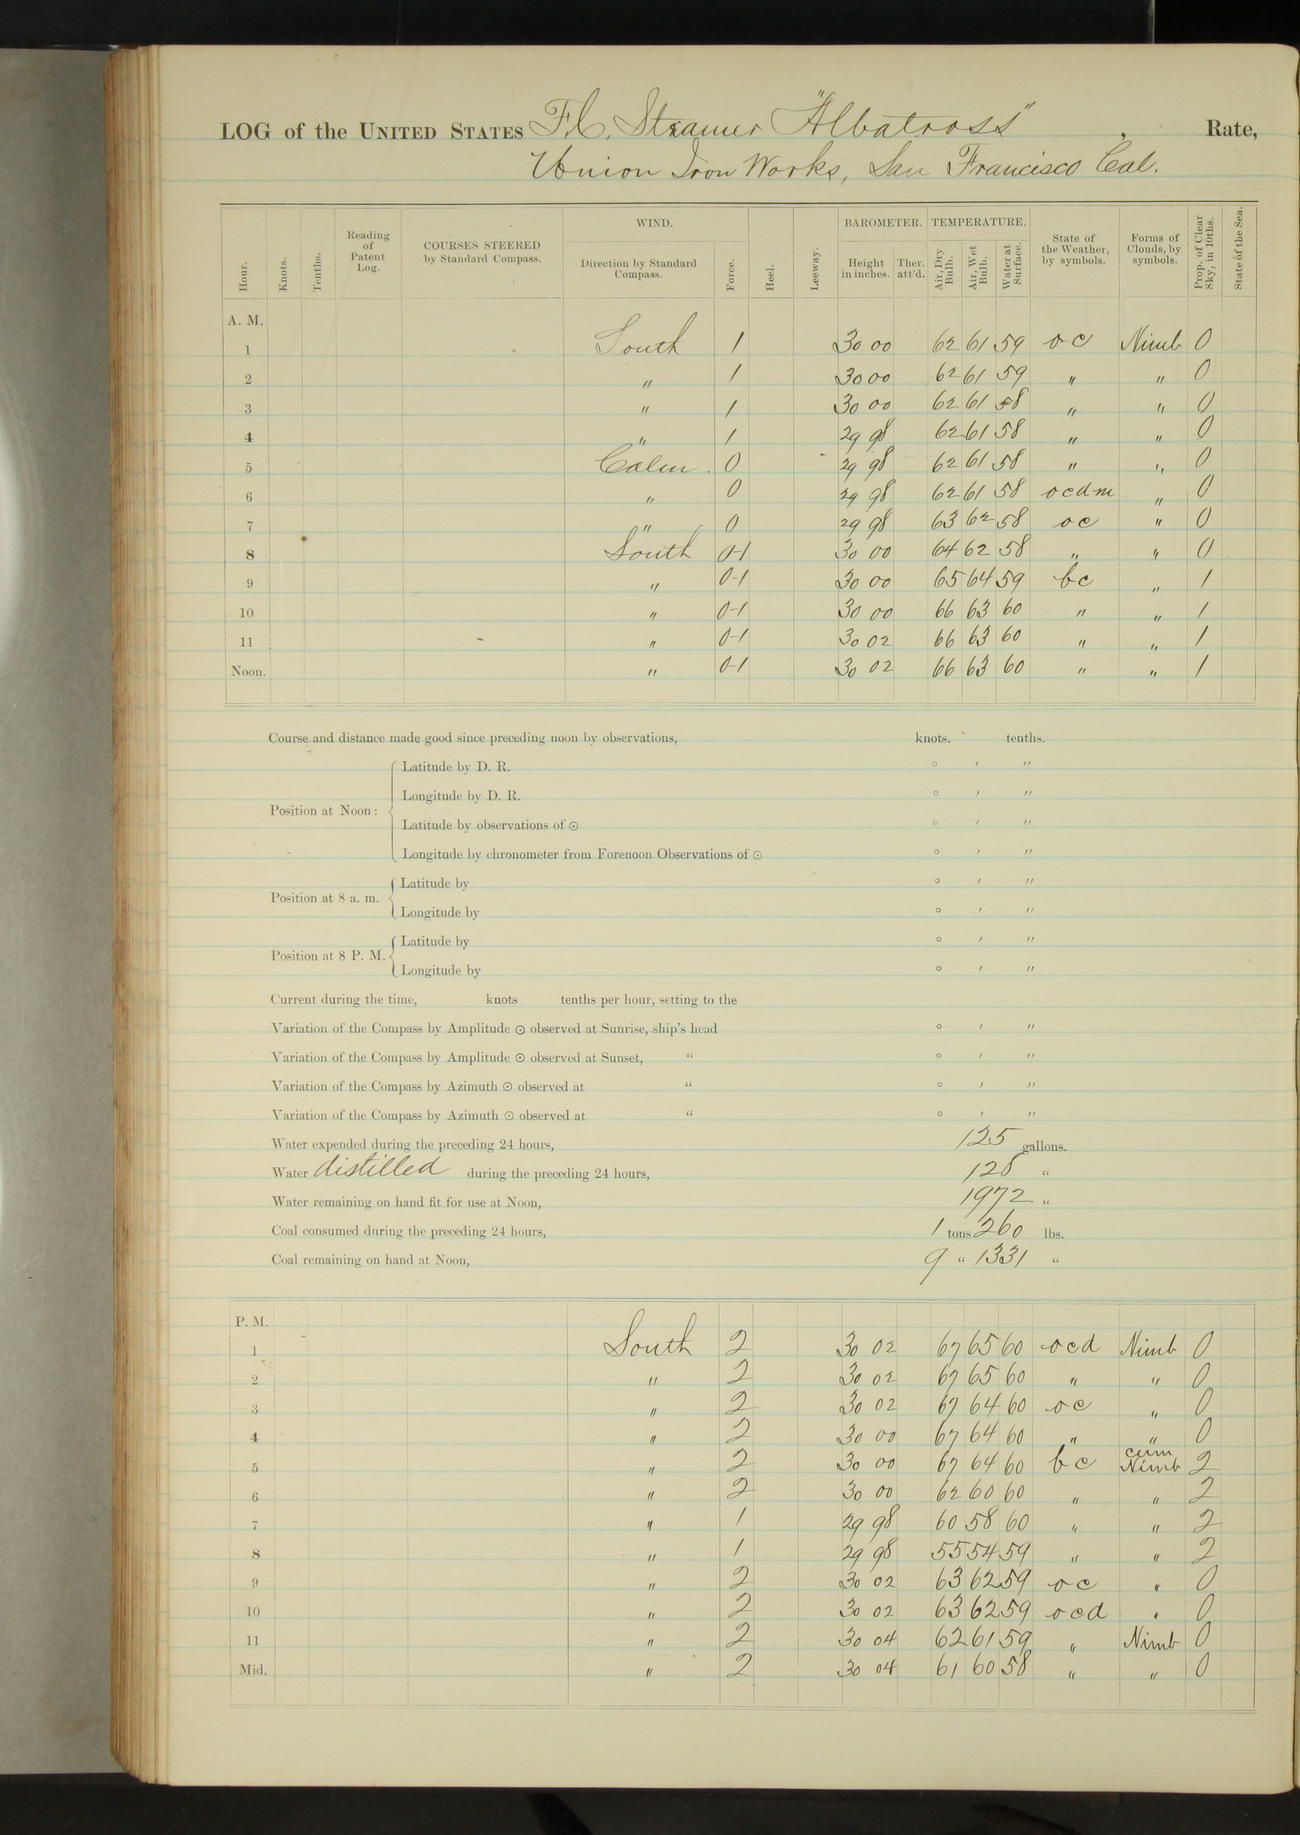 LOG of the UNITED STATES F.C. Steamer "Albatross", Rate,
Union Iron Works, San Francisco Cal.
Hour. Knots. Tenths. Reading of Patent Log. COURSES STEERED by Standard Compass. WIND. Direction by Standard Compass. Force. Heel. Leeway. BAROMETER. Height in inches. Ther. att'd. TEMPERATURE. Air, Dry Bulb. Air, Wet Bulb. Water at Surface. State of the Weather, by symbols. Forms of Clouds, by symbols. Prop. of Clear Sky, in 10ths. State of the Sea.
A. M.
1 South 1 30 00 62 61 59 oc Nimb 0
2 " 1 30 00 62 61 59 " " 0
3 " 1 30 00 62 61 58 " " 0
4 " 1 29 98 62 61 58 " " 0
5 Calm 0 29 98 62 61 58 " " 0
6 " 0 29 98 62 61 58 ocdm " 0
7 " 0 29 98 63 62 58 oc " 0
8 South 0-1 30 00 64 62 58 " " 0
9 " 0-1 30 00 65 64 59 bc " 1
10 " 0-1 30 00 66 63 60 " " 1
11 " 0-1 30 02 66 63 60 " " 1
Noon. " 0-1 30 02 66 63 60 " " 1
Course and distance made good since preceding noon by observations, knots. tenths.
Position at Noon: Latitude by D. R. ° ′ ″
Longitude by D. R. ° ′ ″
Latitude by observations of ☉ ° ′ ″
Longitude by chronometer from Forenoon Observations of ☉ ° ′ ″
Position at 8 a. m. Latitude by ° ′ ″
Longitude by ° ′ ″
Position at 8 P. M. Latitude by ° ′ ″
Longitude by ° ′ ″
Current during the time, knots tenths per hour, setting to the
Variation of the Compass by Amplitude ☉ observed at Sunrise, ship's head ° ′ ″
Variation of the Compass by Amplitude ☉ observed at Sunset, " ° ′ ″
Variation of the Compass by Azimuth ☉ observed at " ° ′ ″
Variation of the Compass by Azimuth ☉ observed at " ° ′ ″
Water expended during the preceding 24 hours, 125 gallons.
Water distilled during the preceding 24 hours, 128 "
Water remaining on hand fit for use at Noon, 1972 "
Coal consumed during the preceding 24 hours, 1 tons 260 lbs.
Coal remaining on hand at Noon, 9 " 1331 "
P. M.
1 South 2 30 02 67 65 60 ocd Nimb 0
2 " 2 30 02 67 65 60 " " 0
3 " 2 30 02 67 64 60 oc " 0
4 " 2 30 00 67 64 60 " " 0
5 " 2 30 00 67 64 60 bc cum Nimb 2
6 " 2 30 00 62 60 60 " " 2
7 " 1 29 98 60 58 60 " " 2
8 " 1 29 98 55 54 59 " " 2
9 " 2 30 02 63 62 59 oc " 0
10 " 2 30 02 63 62 59 ocd " 0
11 " 2 30 04 62 61 59 " Nimb 0
Mid. " 2 30 04 61 60 58 " " 0